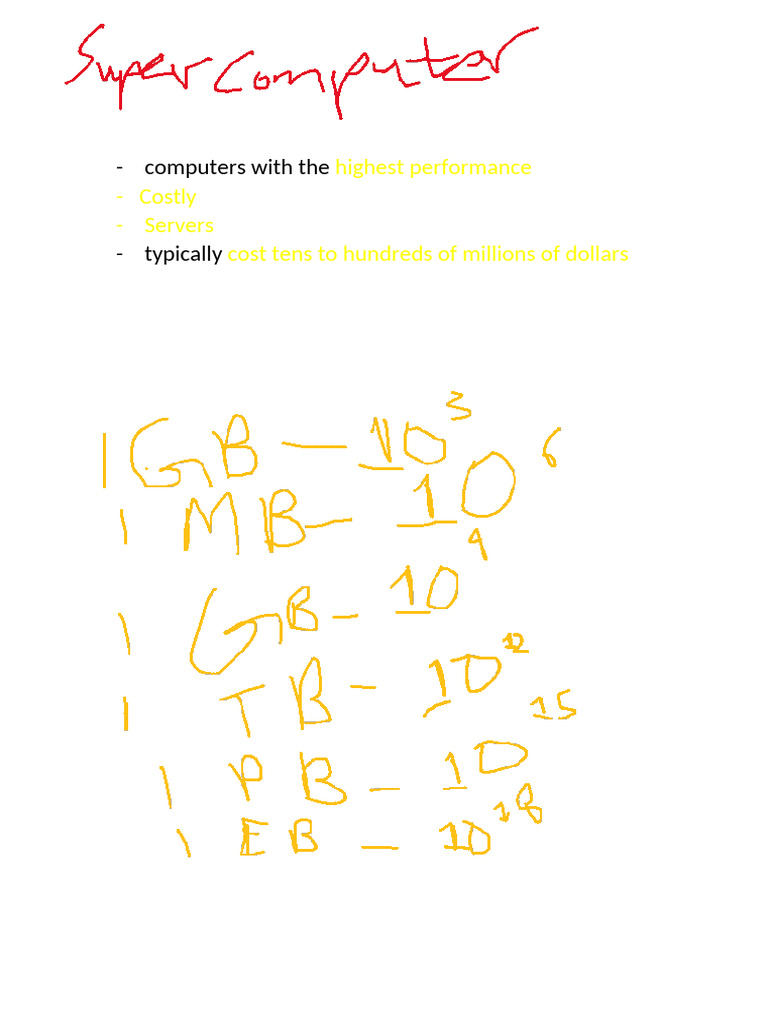 Super Computer
- computers with the highest performance
- Costly
- Servers
- typically cost tens to hundreds of millions of dollars
1 GB — 10³
1 MB — 10⁶
1 GB — 10⁹
1 TB — 10¹²
1 PB — 10¹⁵
1 EB — 10¹⁸